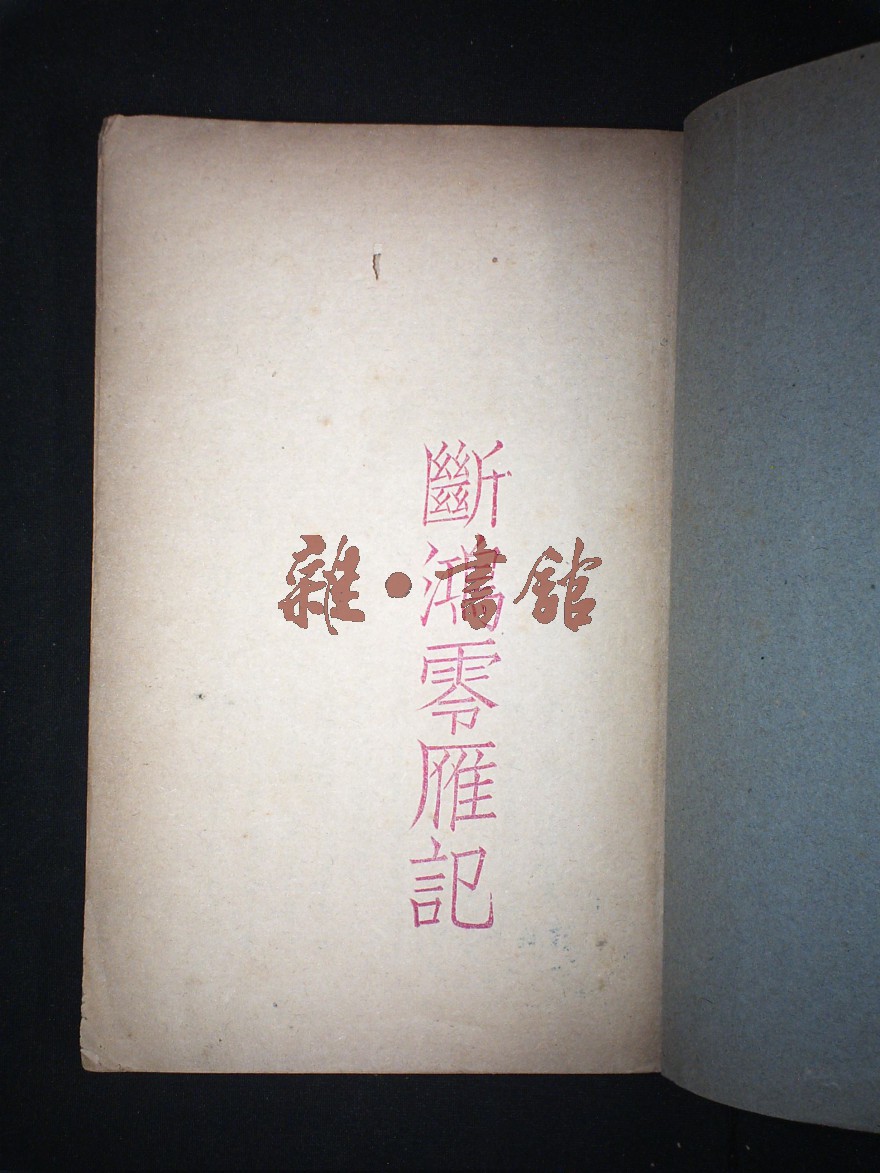 斷鴻零雁記
雜·書館